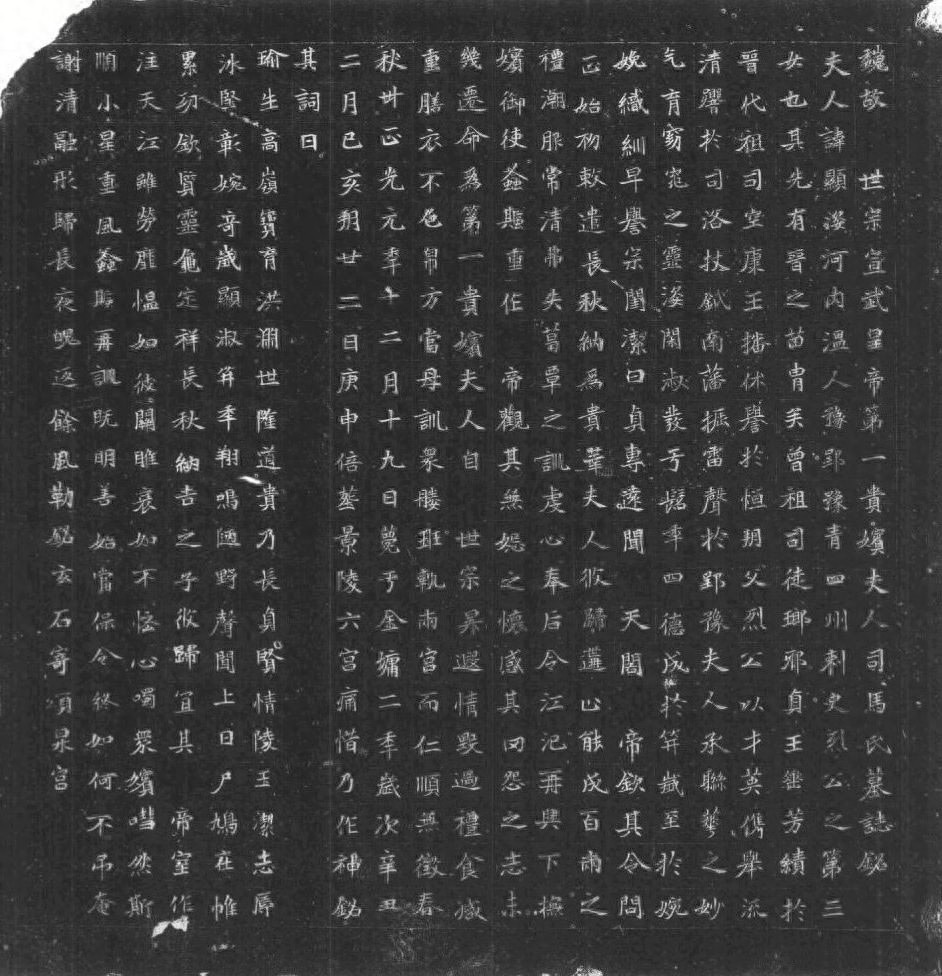 魏故　世宗宣武皇帝第一貴嬪夫人司馬氏墓誌銘
夫人諱顯姿河內溫人豫郢豫青四州刺史烈公之第三
女也其先有晉之苗胄矣曾祖司徒瑯邪貞王垂芳績於
晉代祖司空康王播休譽於恒朔父烈公以才英儁舉流
清響於司洛扙鉞南藩振雷聲於郢豫夫人承聯華之妙
气育窈窕之靈姿閑淑發于髫年四德成於笄歲至於婉
娩織紃早譽宗閨潔白貞專遠聞　天閣　帝欽其令問
正始初敕遣長秋納爲貴華夫人攸歸遘止能成百兩之
禮澣服常清弗失葛覃之訓虔心奉后令江汜再興下撫
嬪御使螽斯重作　帝觀其無妬之懷感其罔怨之志未
幾遷命爲第一貴嬪夫人自　世宗昇遐情毀過禮食減
重膳衣不色帛方當母訓衆媵班軌兩宮而仁順無徵春
秋卅正光元年十二月十九日薨于金墉二年歲次辛丑
二月己亥朔廿二日庚申倍塟景陵六宮痛惜乃作神銘
其詞曰
瑜生高嶺寶育洪淵世隆道貴乃長貞賢情陵玉潔志厚
冰堅彰婉奇歲顯淑笄年翔鳴陋野聲聞上日尸鳩在帷
累功欽質靈龜定祥長秋納吉之子攸歸宜其　帝室作
注天江雖勞靡慍如彼關雎哀如不恡心噣衆嬪嘒然斯
順小星重風螽斯再訓旣明善始當保令終如何不弔奄
謝清融形歸長夜魄返餘風勒銘玄石寄頌泉宮